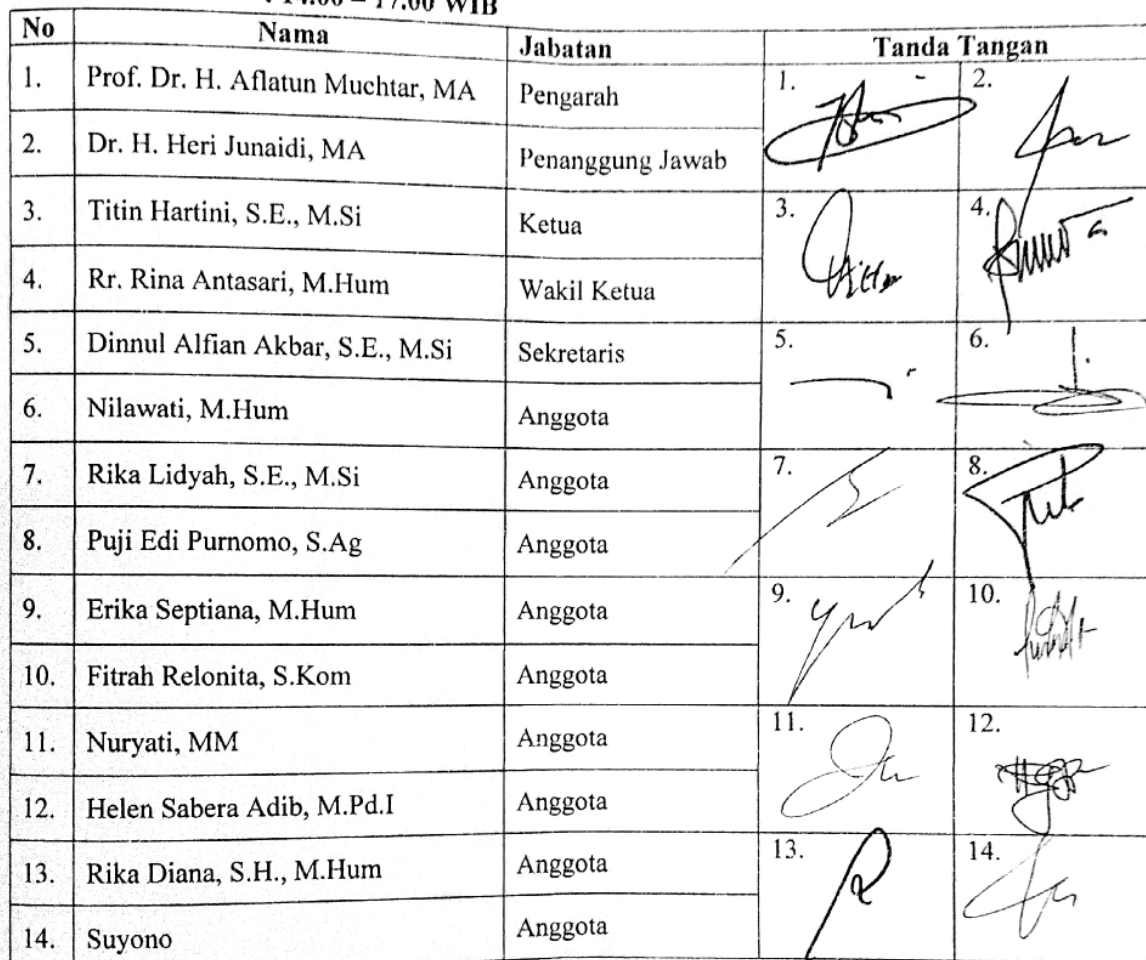 14.00 – 17.00 WIB
No Nama Jabatan Tanda Tangan
1. Prof. Dr. H. Aflatun Muchtar, MA Pengarah 1. 2.
2. Dr. H. Heri Junaidi, MA Penanggung Jawab
3. Titin Hartini, S.E., M.Si Ketua 3. 4.
4. Rr. Rina Antasari, M.Hum Wakil Ketua
5. Dinnul Alfian Akbar, S.E., M.Si Sekretaris 5. 6.
6. Nilawati, M.Hum Anggota
7. Rika Lidyah, S.E., M.Si Anggota 7. 8.
8. Puji Edi Purnomo, S.Ag Anggota
9. Erika Septiana, M.Hum Anggota 9. 10.
10. Fitrah Relonita, S.Kom Anggota
11. Nuryati, MM Anggota 11. 12.
12. Helen Sabera Adib, M.Pd.I Anggota
13. Rika Diana, S.H., M.Hum Anggota 13. 14.
14. Suyono Anggota